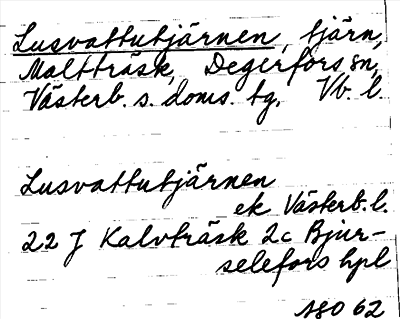 Lusvattutjärnen, tjärn,
Maltträsk, Degerfors sn,
Västerb. s. doms. tg. Vb. l.
Lusvattutjärnen
ek Västerb. l.
22 J Kalvträsk 2c Bjur-
selefors hpl
ASO 62